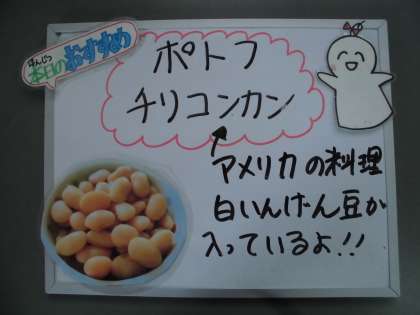 ほんじつ
本日のおすすめ
ポトフ
チリコンカン
アメリカの料理
白いんげん豆が
入っているよ!!